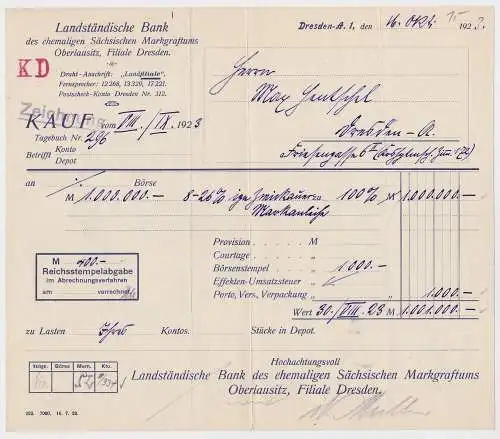 Landständische Bank
des ehemaligen Sächsischen Markgraftums
Oberlausitz, Filiale Dresden.
Draht-Anschrift: „Landfiliale".
Fernsprecher: 12268, 13320, 17221.
Postscheck-Konto Dresden Nr. 312.
KD
Dresden-A. 1, den 16. Okt. 1923.
15-
Herrn
Max Hentschel
Dresden-A.
Zeichnung
KAUF vom VIII./IX. 1923
Tagebuch Nr. 296
Betrifft Konto
Depot
an Börse
M 1.000.000.- 8-26% ige Zwickauer 100% M 1.000.000.-
Markanleihe
Provision M
Courtage „
Börsenstempel „ 1.000.-
Effekten-Umsatzsteuer „
Porto, Vers., Verpackung „ 1.000.-
Wert 30./VIII. 23 M 1.001.000.-
M 400.-
Reichsstempelabgabe
im Abrechnungsverfahren
am verrechnet.
zu Lasten Ihres Kontos. Stücke in Depot.
Hochachtungsvoll
Landständische Bank des ehemaligen Sächsischen Markgraftums
Oberlausitz, Filiale Dresden.
Börse Mem. Kto.